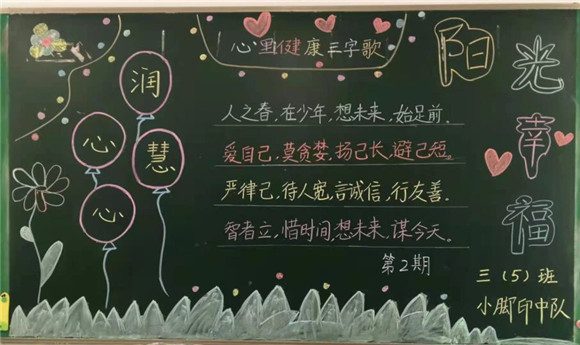 心里健康三字歌
阳光幸福
润
心
慧
心
人之春，在少年，想未来，始足前。
爱自己，莫贪婪，扬己长，避己短。
严律己，待人宽，言诚信，行友善。
智者立，惜时间，想未来，谋今天。
第2期
三（5）班
小脚印中队